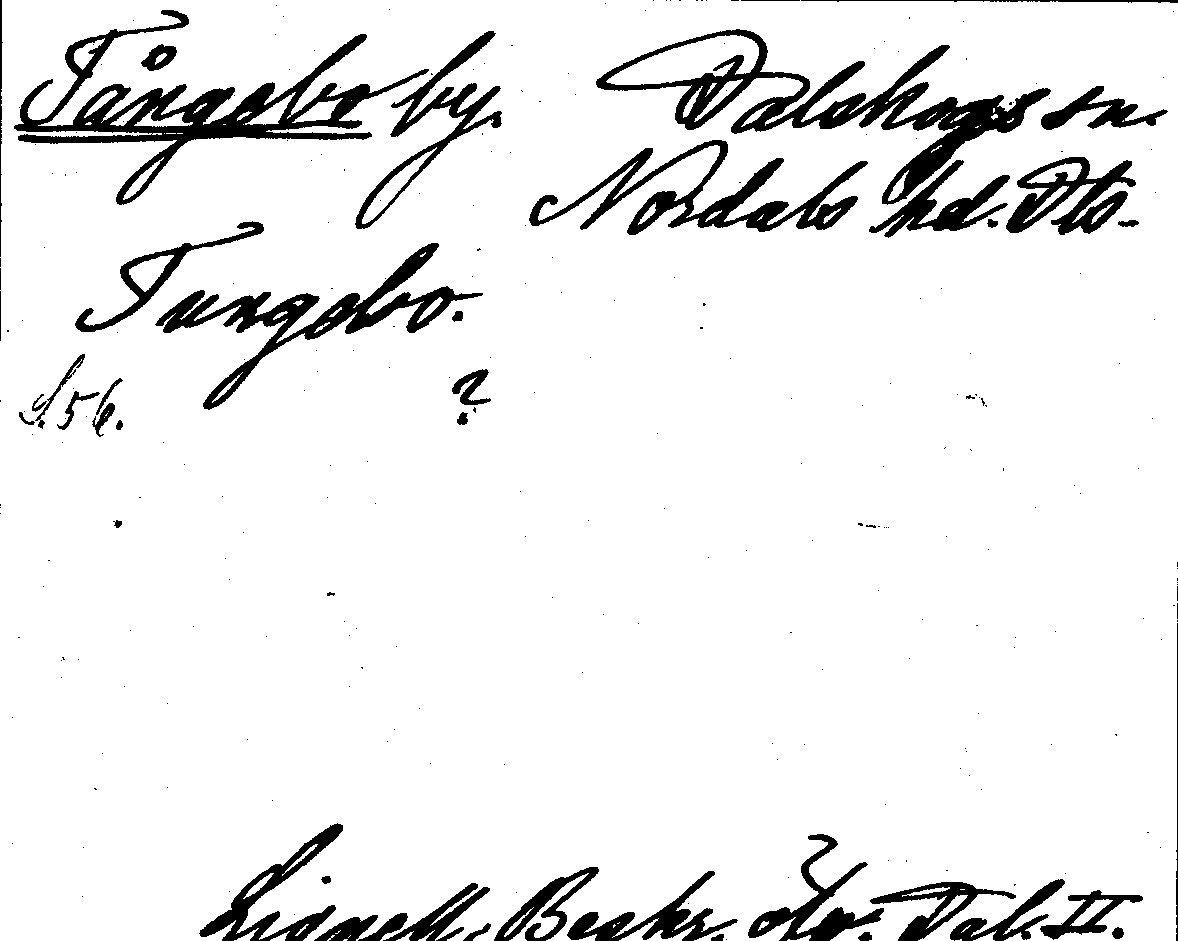 Tångebo by. Dalskogs sn.
Nordals hd. Dls.
Tungebo.
S. 56. ?
Lignell, Beskr. öfv. Dal. II.